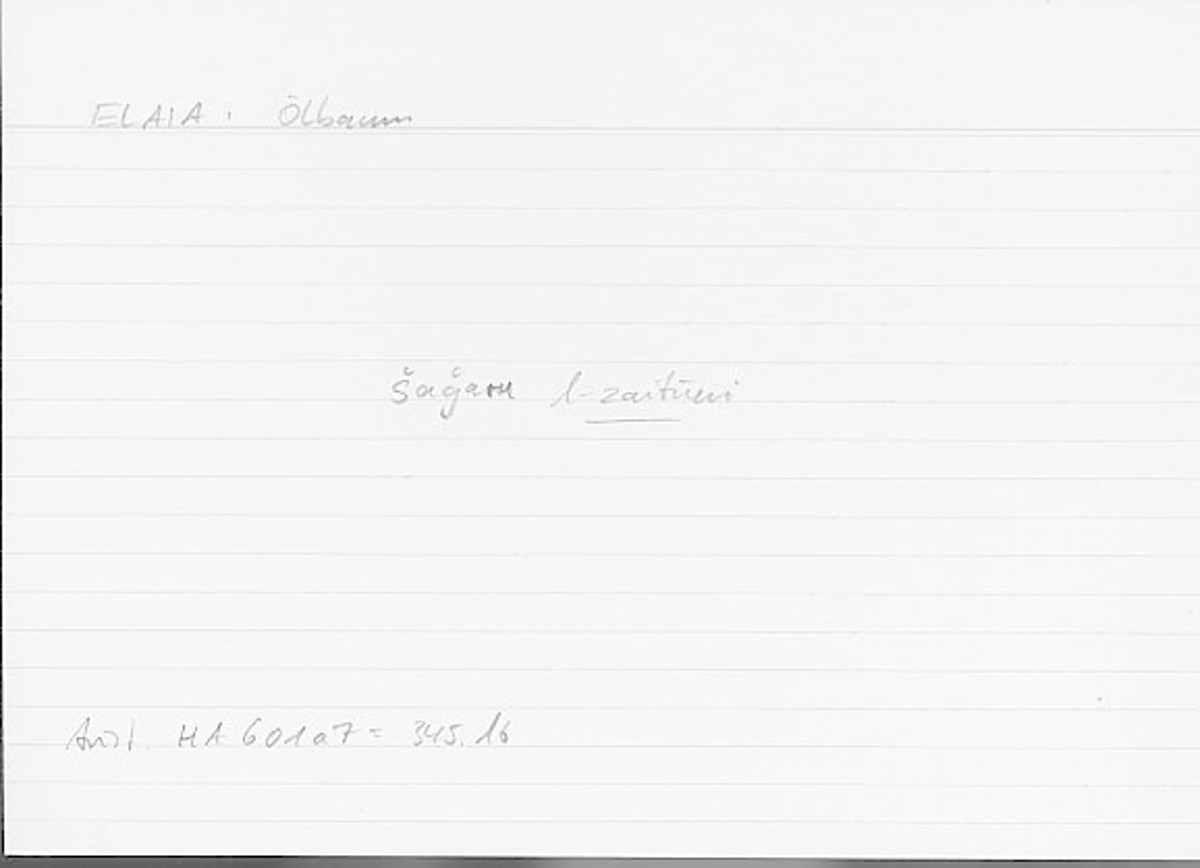 ELAIA : Ölbaum
šağaru l-zaitūni
Arist. HA 601a7 = 345.16